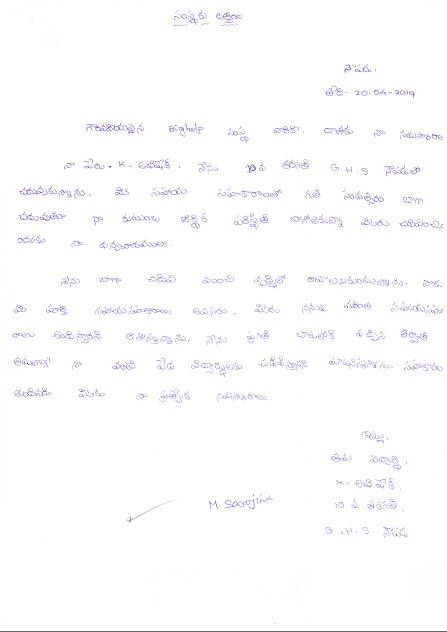 సంస్థకు ఉత్తరం
నౌపడ.
తేది- 20-04-2019
గౌరవనీయులైన Bighelp సంస్థ వారికి. దాతకు నా నమస్కారాలు
నా పేరు. K. అభిషేక్. నేను 10వ తరగతి G.H.S నౌపడలో
చదువుకున్నాను. మీ సహాయ సహకారాలతో గత సంవత్సరం బాగా
చదువుతూ నా కుటుంబ ఆర్థిక పరిస్థితి బాగోలేకున్నా మీరు చదివించి
నందుకు నా ధన్యవాదములు.
నేను బాగా చదివి మంచి వృద్ధిలో రావాలనుకుంటున్నాను. నాకు
మీ యొక్క సహాయసహకారాలు అవసరం. మీరు నన్ను మరింత సహాయసహకా
రాలు అందిస్తారని ఆశిస్తున్నాను. నేను ప్రగతి బాటలోకి వచ్చిన తర్వాత
తమలాగే నా వంటి పేద విద్యార్థులకు చదివిస్తానని మాటనిస్తున్నాను. సహకారం
అందినది మీకు నా ప్రత్యేక నమస్కారాలు.
ఇట్లు,
తమ విద్యార్థి,
K- అభిషేక్.
10 వ తరగతి.
G.H.S నౌపడ
M. Sarojini